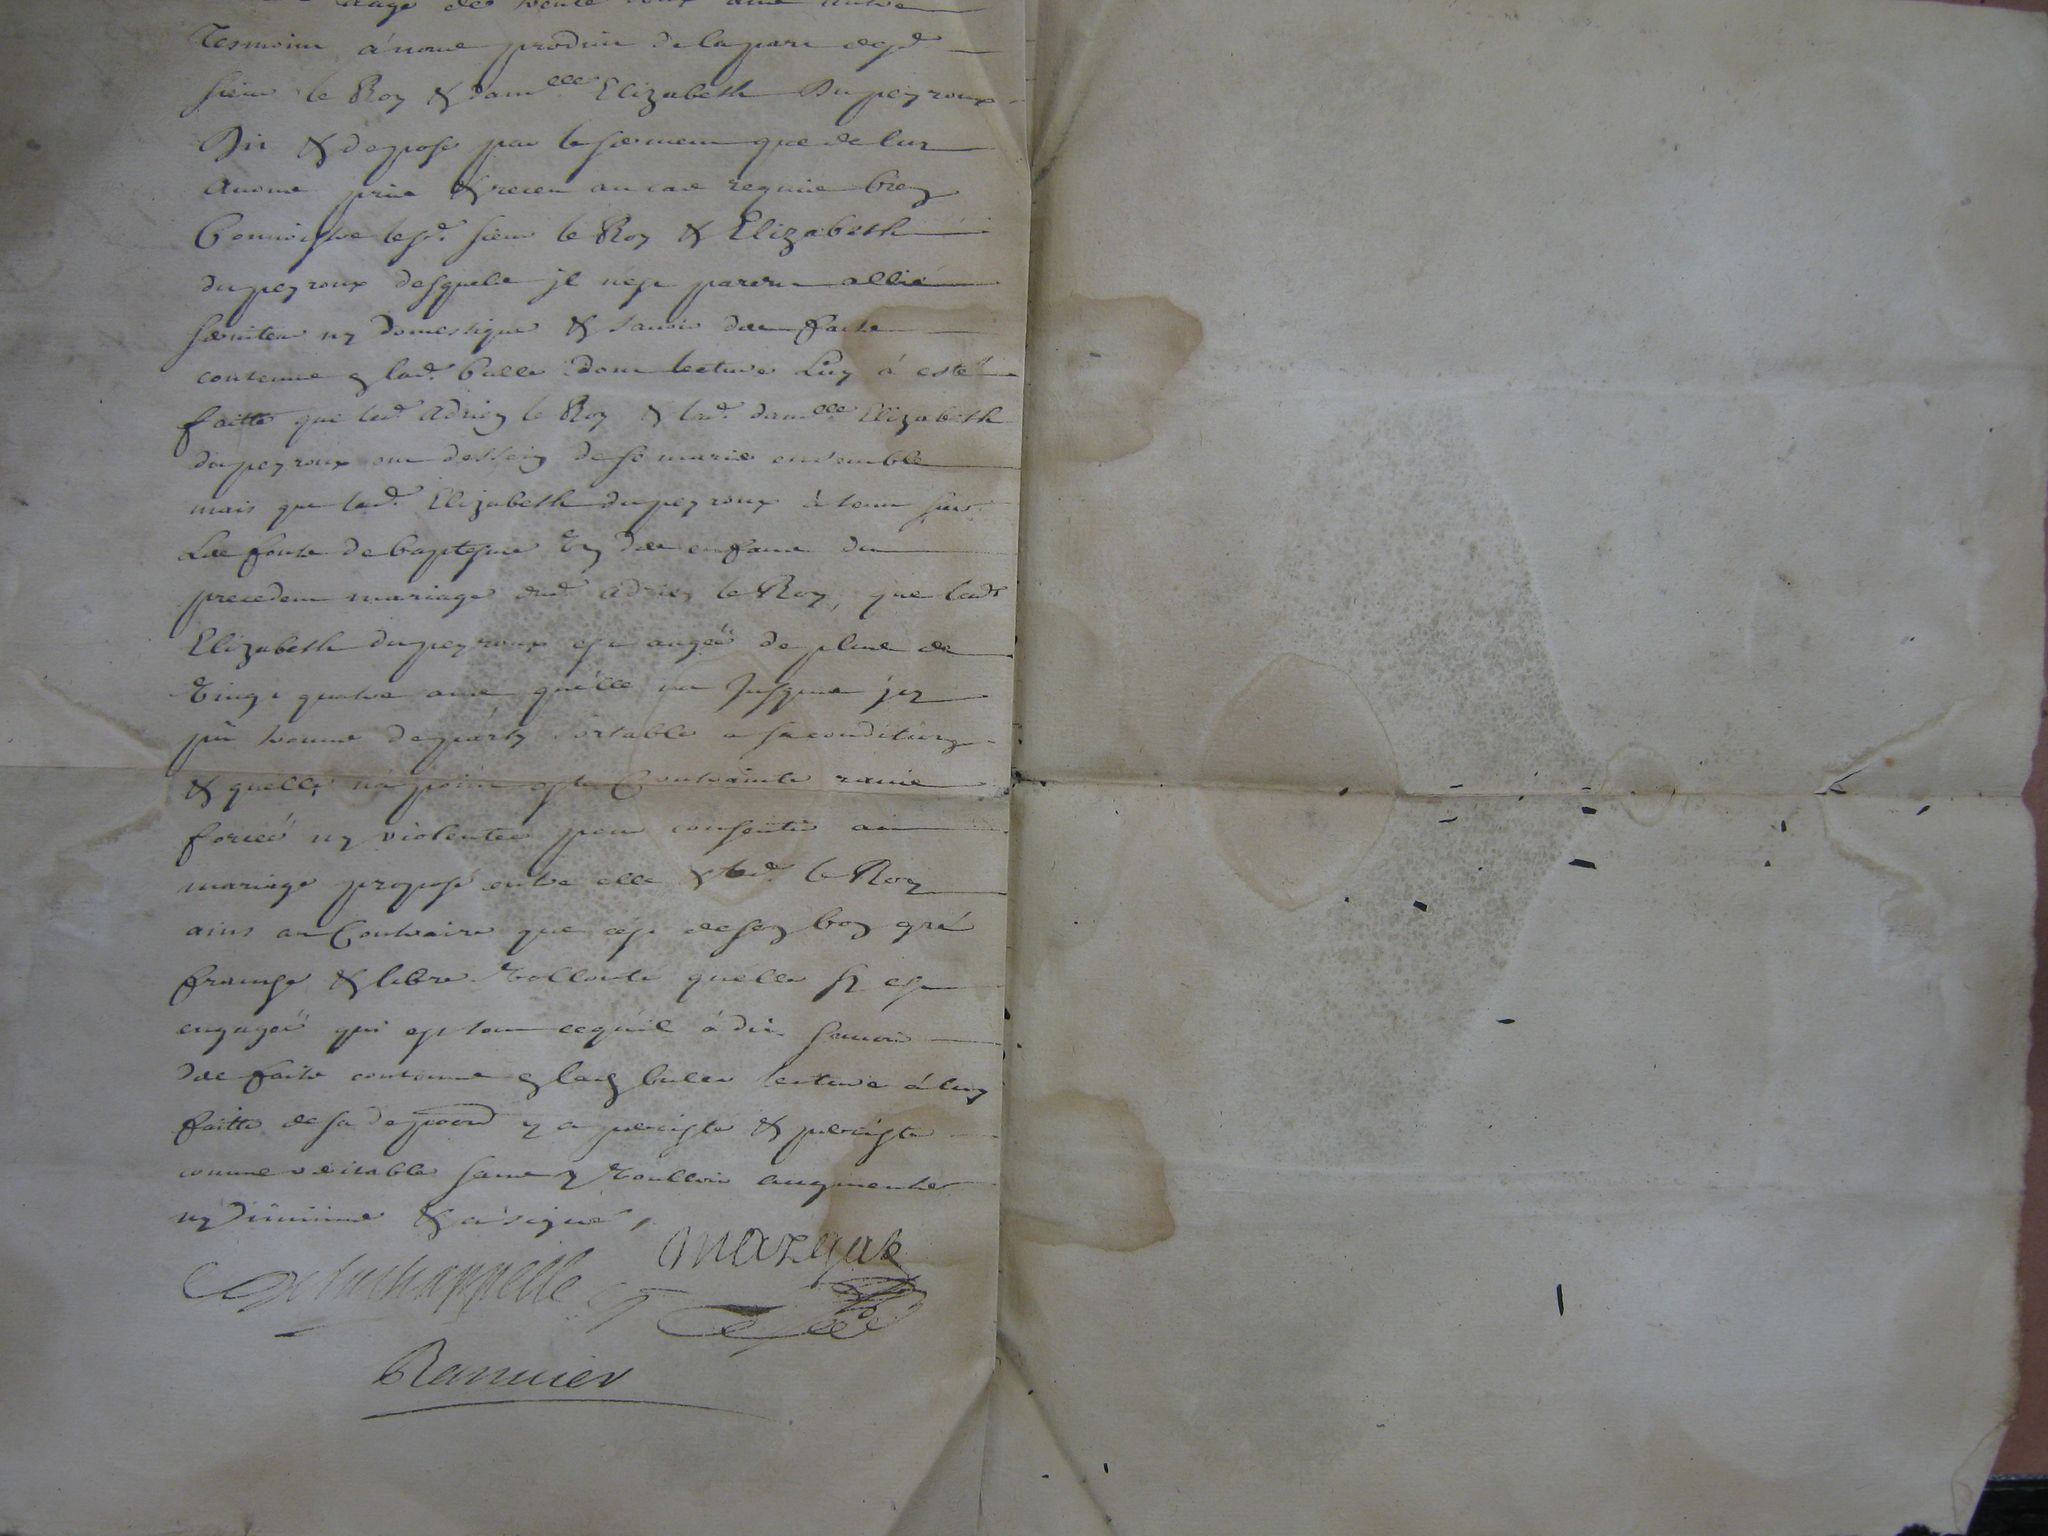 aage de trente deux ans autre
Tesmoin à nous produit de la part desd
sieur le Roy & dam^elle Elizabeth Dupeyroux
Dit & depose par le serment que de luy
auons pris & receu au cas requis bien
Connoistre lesd. sieur le Roy & Elizabeth
dupeyroux desquels jl nest parent allié
seruiteur ny domestique & sauoir des faits
contenus en lad. bulle dont lecture Luy à esté
faitte que led. Adrien le Roy & lad. dam^lle Elizabeth
dupeyroux ont dessein de se marier ensemble
mais que lad. Elizabeth dupeyroux à tenu sur
Les fonts de baptesme Un des enfans du
precedent mariage dud. adrien le Roy, que lad.
Elizabeth dupeyroux est aagée de plus de
Vingt quatre ans qu'elle na jusques jcy
pû trouuer de party sortable a sa condition
& quelle na point esté Contrainte rauie
forcée ny violentée pour consentir au
mariage proposé entre elle & led. le Roy
ains au Contraire que cest de son bon gré
franche & libre Vollonté quelle sy est
engagée qui est tout ce qu'il à dit sauoir
des faits contenus en lad bulle lecture à luy
faitte de sa depoon y a persisté & persiste
comme veritable sans y Voulloir augmenter
ny diminuer & a signé,
Mazeque
Delachappelle
Rannier